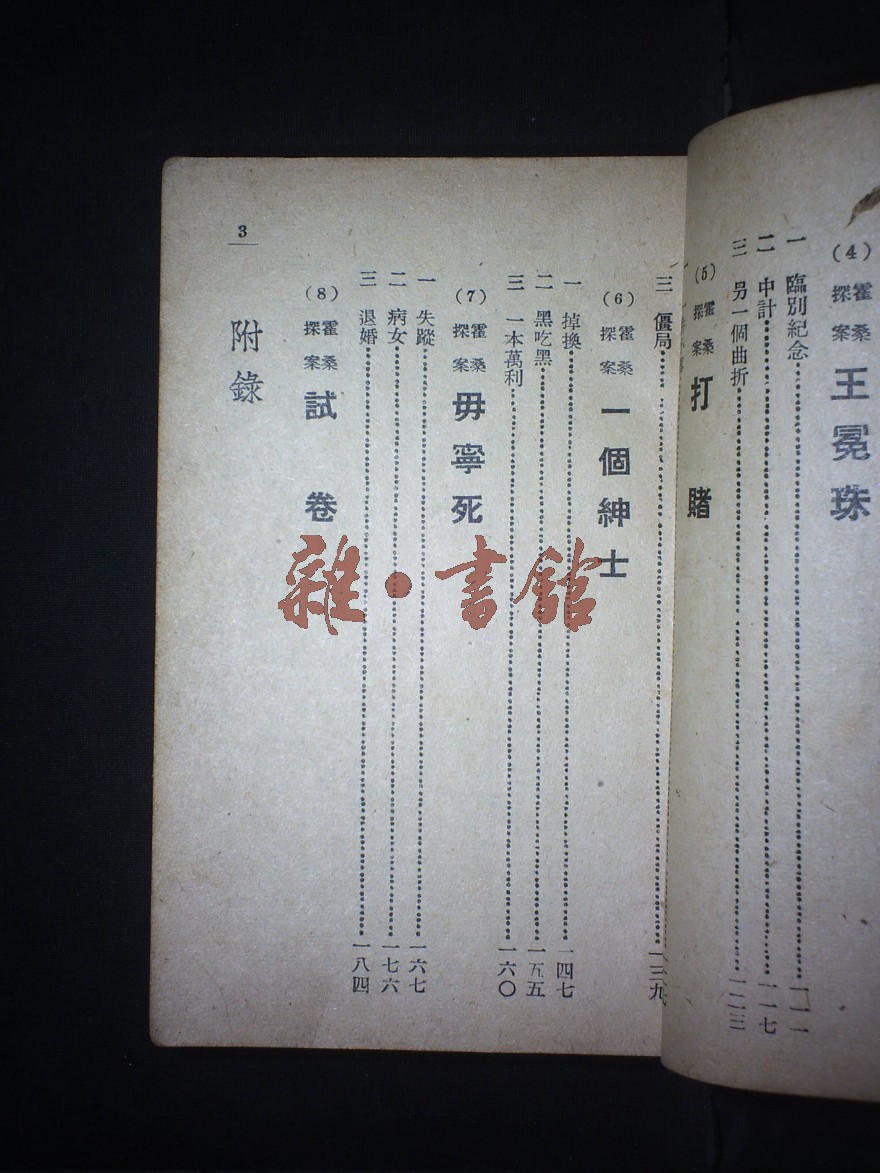 (4) 霍桑探案 王冕珠
一 臨別紀念 一一一
二 中計 一一七
三 另一個曲折 一二三
(5) 霍桑探案 打賭
三 僵局 一三九
(6) 霍桑探案 一個紳士
一 掉換 一四七
二 黑吃黑 一五五
三 一本萬利 一六〇
(7) 霍桑探案 毋寧死
一 失蹤 一六七
二 病女 一七六
三 退婚 一八四
(8) 霍桑探案 試卷
附錄
3
雜·書館